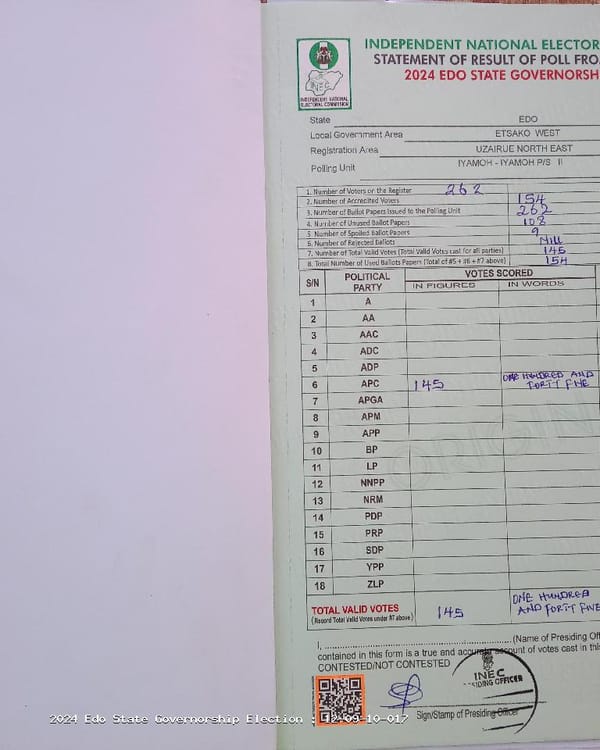 INDEPENDENT NATIONAL ELECTOR
STATEMENT OF RESULT OF POLL FRO
2024 EDO STATE GOVERNORSH
INDEPENDENT NATIONAL
ELECTORAL COMMISSION
State EDO
Local Government Area ETSAKO WEST
Registration Area UZAIRUE NORTH EAST
Polling Unit IYAMOH - IYAMOH P/S II
1. Number of Voters on the Register 262
2. Number of Accredited Voters 154
3. Number of Ballot Papers Issued to the Polling Unit 262
4. Number of Unused Ballot Papers 108
5 Number of Spoiled Ballot Papers 9
6. Number of Rejected Ballots Nill
7. Number of Total Valid Votes (Total Valid Votes cast for all parties) 145
8. Total Number of Used Ballots Papers (Total of #5 + #6 + #7 above) 154
S/N POLITICAL PARTY VOTES SCORED
IN FIGURES IN WORDS
1 A
2 AA
3 AAC
4 ADC
5 ADP
6 APC 145 ONE HUNDRED AND FORTY FIVE
7 APGA
8 APM
9 APP
10 BP
11 LP
12 NNPP
13 NRM
14 PDP
15 PRP
16 SDP
17 YPP
18 ZLP
TOTAL VALID VOTES 145 ONE HUNDRED AND FORTY FIVE
(Record Total Valid Votes under #7 above)
I, (Name of Presiding Off
contained in this form is a true and accurate account of votes cast in this
CONTESTED/NOT CONTESTED
INEC
SIDING OFFICER
Sign/Stamp of Presiding Officer
2024 Edo State Governorship Election